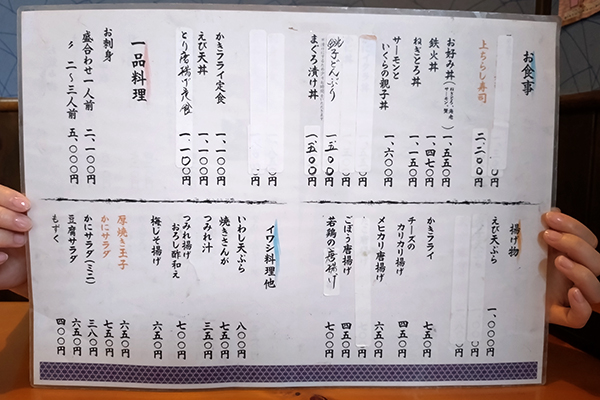 お食事
円
上ちらし寿司 二、二〇〇円
お好み丼 一、五五〇円
鉄火丼 一、四七〇円
ねぎとろ丼 一、一五〇円
サーモンと
いくらの親子丼 一、六〇〇円
円
円
一、五〇〇円
まぐろ漬け丼 一、五〇〇円
円
円
かきフライ定食 一、一〇〇円
えび天丼 一、一〇〇円
とり唐揚げ定食 一、一〇〇円
一品料理
お刺身
盛合わせ一人前 二、一〇〇円
〃 二〜三人前 五、〇〇〇円
揚げ物
えび天ぷら 一、〇〇〇円
円
円
かきフライ 七五〇円
チーズの
カリカリ揚げ 四五〇円
メヒカリ唐揚げ 六五〇円
円
ごぼう唐揚げ 四五〇円
若鶏の唐揚げ 七〇〇円
イワシ料理他
いわし天ぷら 八〇〇円
焼きさんが 七五〇円
つみれ汁 三五〇円
つみれ揚げ
おろし酢和え 七〇〇円
梅しそ揚げ 六五〇円
厚焼き玉子 六五〇円
かにサラダ 七五〇円
かにサラダ(ミニ) 三八〇円
豆腐サラダ 六五〇円
もずく 四〇〇円